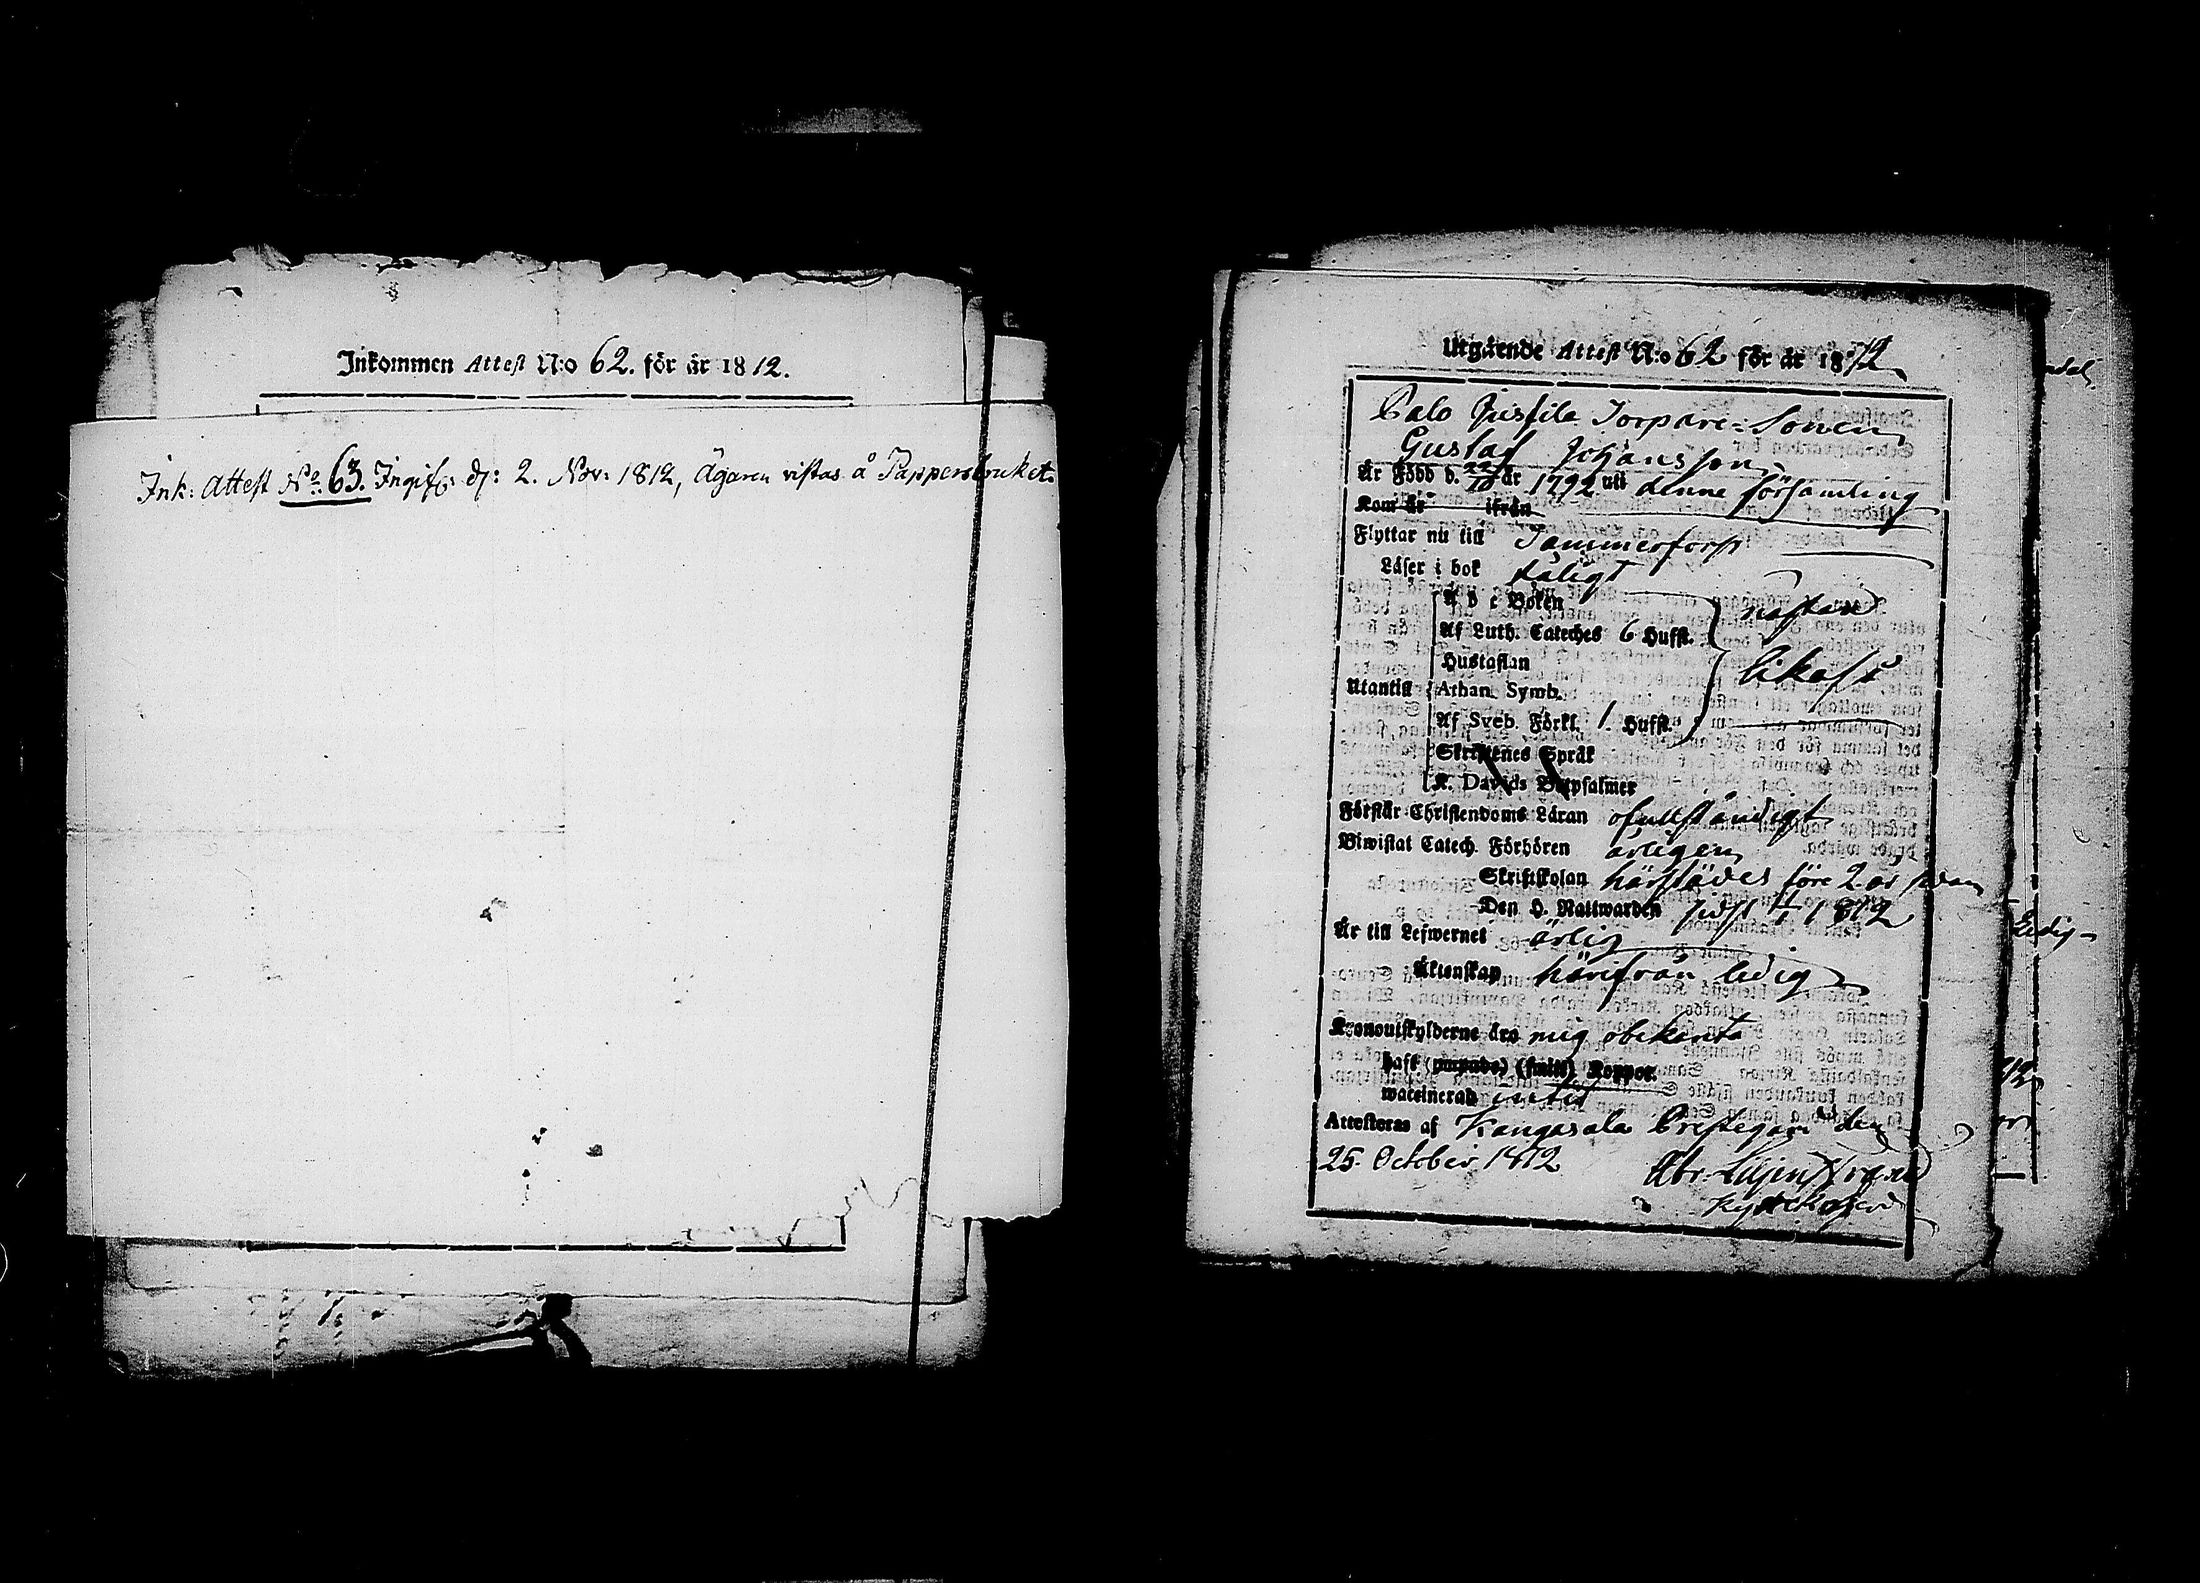 Inkommen Attest N:o 62. för år 1812.
Ink: Attest No: 63. Ingif: d: 2. Nov: 1812, Ägaren vistas å Pappersbruket.
Utgående Attest N:o 62 för år 1812
Torpare-Sonen
Gustaf Johansson
Är Född d. 22/10 år 1792 uti denne församling
Kom år ifrån
Flyttar nu till Tammerfors
Läser i bok
A b c Boken nästan
Af Luth. Cateches 6 Hufst.
Hustaflan likaså
Utantill Athan. Symb.
Af Sveb. Förkl. 1. Hufst.
Skriftenes Språk
K. Davids Botpsalmer
Förstår Christendoms Läran ofullständigt
Biwistat Catech. Förhören årligen
Skriftskolan härstädes före 2 år sedan
Den H. Nattwarden sidst 1812
Är till Lefwernet ärlig
Äktenskap härifrån ledig
Kronoutskylderne äro mig obekanta
haft (smitt) Koppor.
waccinerad
Attesteras af Kangasala Prestegård den
25. October 1812 Abr. Liljenstrand
Kyrkoherde
Ledig